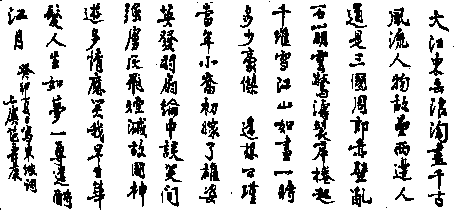 大江東去浪淘盡千古
風流人物故壘西邊人
道是三國周郎赤壁亂
石崩雲驚濤裂岸捲起
千堆雪江山如畫一時
多少豪傑 遙想公瑾
當年小喬初嫁了雄姿
英發羽扇綸巾談笑間
強虜灰飛煙滅故國神
遊多情應笑我早生華
髮人生如夢一尊還酹
江月 癸卯夏日寫東坡詞
上虞范壽康